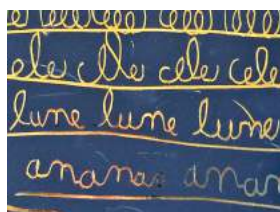 ele elle cele cele
lune lune lune
ananas anan